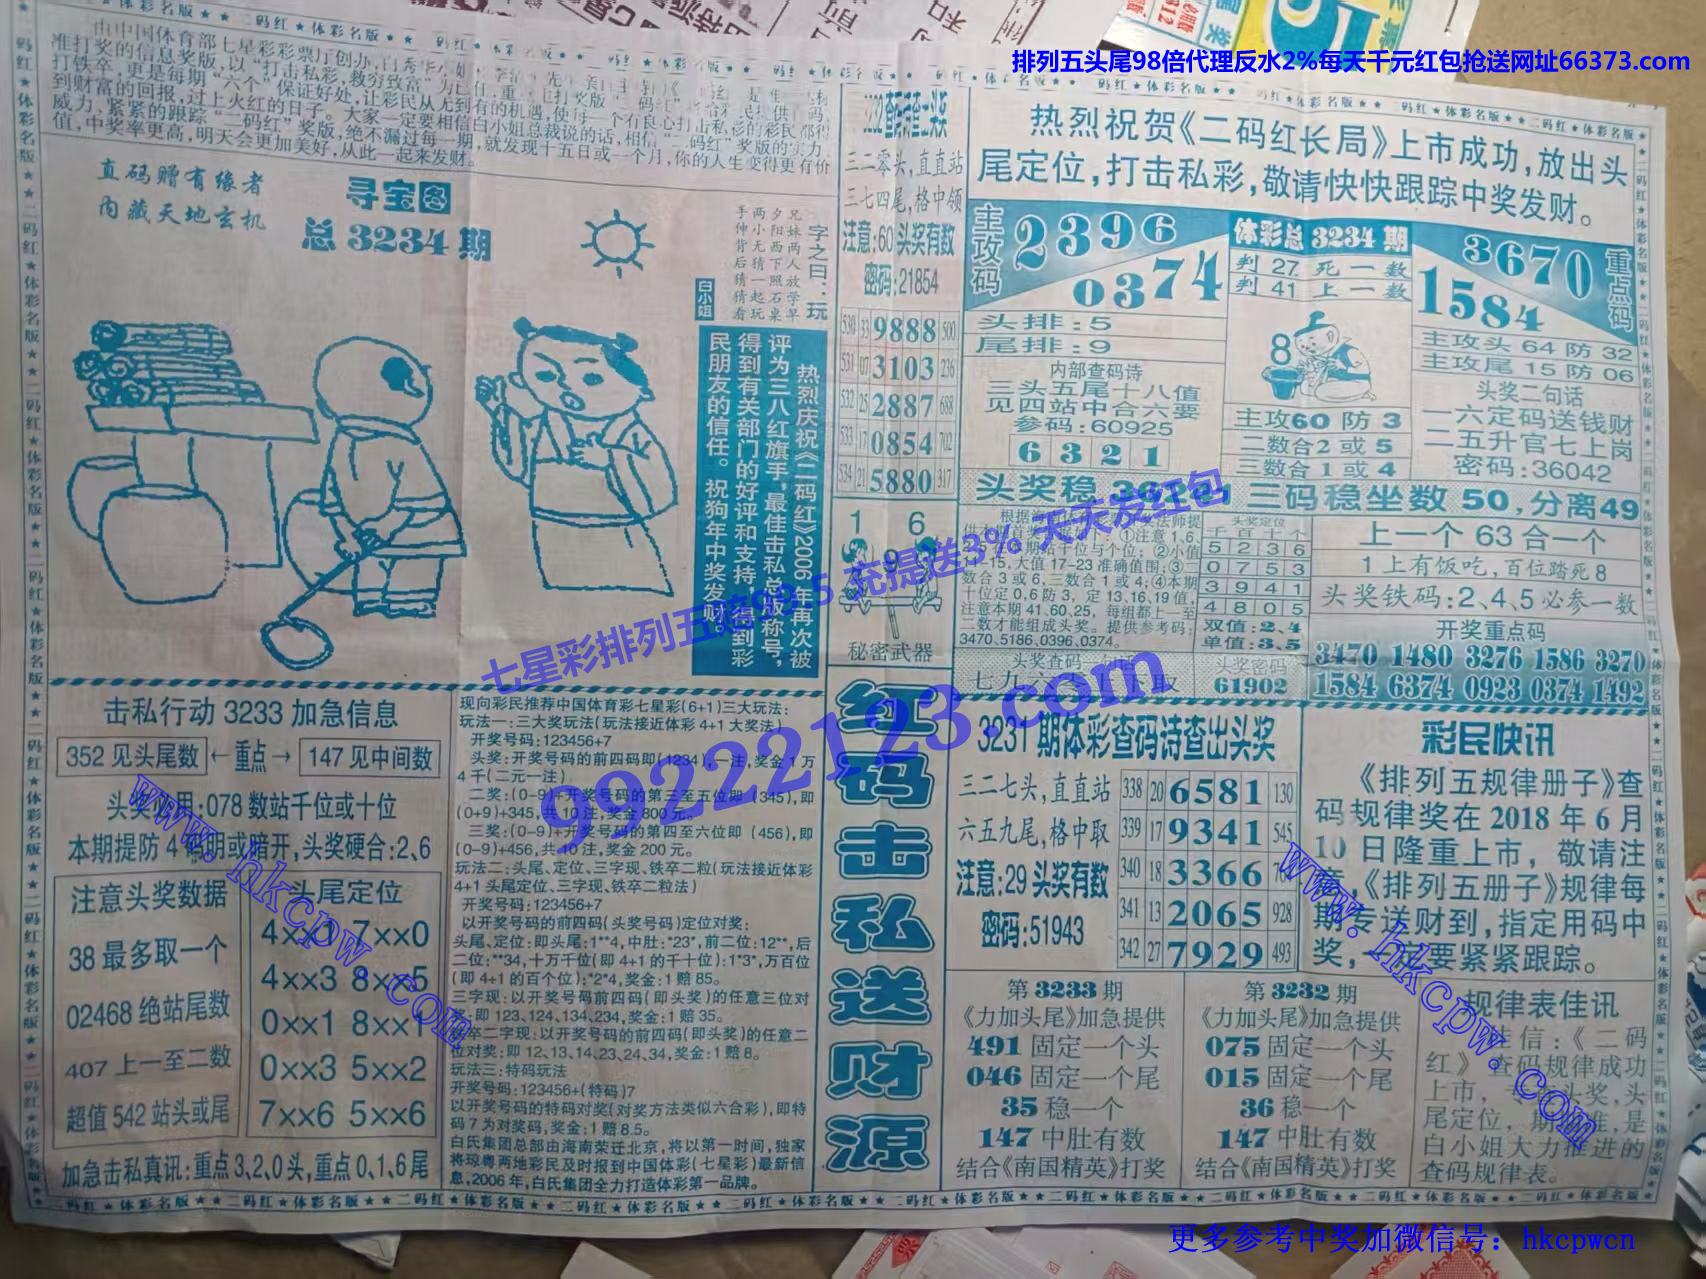 排列五头尾98倍代理反水2%每天千元红包抢送网址66373.com
准打奖的信息奖版,以“打击私彩,救穷致富”为己任,重
到财富的回报,过上火红的日子。大家一定要相信白小姐总裁说的话,相信
威力,紧紧的跟踪“二码红”奖版,绝不漏过每一期,就发现十五日或一个月,你的人生变得更有价
值,中奖率更高,明天会更加美好,从此一起来发财。
真码赠有缘者
内藏天地玄机
寻宝图
总3234期
字之曰:玩
兄妹两人放学早
夕阳西下照石桌
两小无猜一起玩
手伸背后猜猜看
白小姐
热烈庆祝《二码红》2006年再次被
评为三八红旗手,最佳击私总版称号,
得到有关部门的好评和支持,得到彩
民朋友的信任。祝狗年中奖发财。
三二零头,直直站
三七四尾,格中领
注意:60头奖有数
密码:21854
530 33 9888 500
531 07 3103 236
532 25 2887 688
533 17 0854 702
534 21 5880 317
1 6
9
秘密武器
热烈祝贺《二码红长局》上市成功,放出头
尾定位,打击私彩,敬请快快跟踪中奖发财。
主攻码
2396
0374
体彩总3234期
判27死一数
判41上一数
3670
1584
重点码
头排:5
尾排:9
内部查码诗
三头五尾十八值
见四站中合六要
参码:60925
6321
8
主攻60防3
二数合2或5
三数合1或4
主攻头64防32
主攻尾15防06
头奖二句话
一六定码送钱财
二五升官七上岗
密码:36042
三码稳坐数50,分离49
注意本期41、60、25,每组都上一至
二数才能组成头奖。提供参考码:
3470、5186、0396、0374。
头奖定位
千百十个
5236
0753
3941
4805
双值:2、4
单值:3、5
上一个63合一个
1上有饭吃,百位踏死8
头奖铁码:2、4、5必参一数
开奖重点码
3470 1480 3276 1586 3270
1584 6374 0923 0374 1492
头奖密码
61902
七星彩排列五赔99.5 充提送3% 天天发红包
99222123.com
击私行动3233加急信息
352见头尾数 ←重点→ 147见中间数
078数站千位或十位
头奖硬合:2、6
注意头奖数据
38最多取一个
02468绝站尾数
407上一至二数
超值542站头或尾
头尾定位
4××1 7××0
4××3 8××5
0××1 8××1
0××3 5××2
7××6 5××6
加急击私真讯:重点3、2、0头,重点0、1、6尾
现向彩民推荐中国体育彩七星彩(6+1)三大玩法:
玩法一:三大奖玩法(玩法接近体彩4+1大奖法)
开奖号码:123456+7
头奖:开奖号码的前四码即(1234),一注,奖金1万
4千(二元一注)
二奖:(0-9)+开奖号码的第三至五位即(345),即
(0+9)+345,共10注,奖金800元。
三奖:(0-9)+开奖号码的第四至六位即(456),即
(0-9)+456,共10注,奖金200元。
玩法二:头尾、定位、三字现、铁卒二粒(玩法接近体彩
4+1头尾定位、三字现、铁卒二粒法)
开奖号码:123456+7
以开奖号码的前四码(头奖号码)定位对奖:
头尾、定位:即头尾:1**4,中肚:*23*,前二位:12**,后
二位:**34,十万千位(即4+1的千十位):1*3*,万百位
(即4+1的百个位):*2*4,奖金:1赔85。
三字现:以开奖号码前四码(即头奖)的任意三位对
奖:即123、124、134、234,奖金:1赔35。
铁卒二字现:以开奖号码的前四码(即头奖)的任意二
位对奖:即12、13、14、23、24、34,奖金:1赔8。
玩法三:特码玩法
开奖号码:123456+(特码)7
以开奖号码的特码对奖(对奖方法类似六合彩),即特
码7为对奖码,奖金:1赔8.5。
白氏集团总部由海南荣迁北京,将以第一时间,独家
将琼粤两地彩民及时报到中国体彩(七星彩)最新信
息,2006年,白氏集团全力打造体彩第一品牌。
红码击私送财源
3231期体彩查码诗查出头奖
三二七头,直直站
六五九尾,格中取
注意:29头奖有数
密码:51943
338 20 6581 130
339 17 9341 545
340 18 3366
341 13 2065 928
342 27 7929 493
彩民快讯
《排列五规律册子》查
码规律奖在2018年6月
10日隆重上市,敬请注
意,《排列五册子》规律每
期专送财到,指定用码中
奖,一定要紧紧跟踪。
第3233期
《力加头尾》加急提供
491固定一个头
046固定一个尾
35稳一个
147中肚有数
结合《南国精英》打奖
第3232期
《力加头尾》加急提供
075固定一个头
015固定一个尾
36稳一个
147中肚有数
结合《南国精英》打奖
规律表佳讯
佳信:《二码
红》查码规律成功
上市,专查头奖、头
尾定位,期期准,是
白小姐大力推进的
查码规律表。
www.hkcpw.com
www.hkcpw.com
更多参考中奖加微信号:hkcpwcn